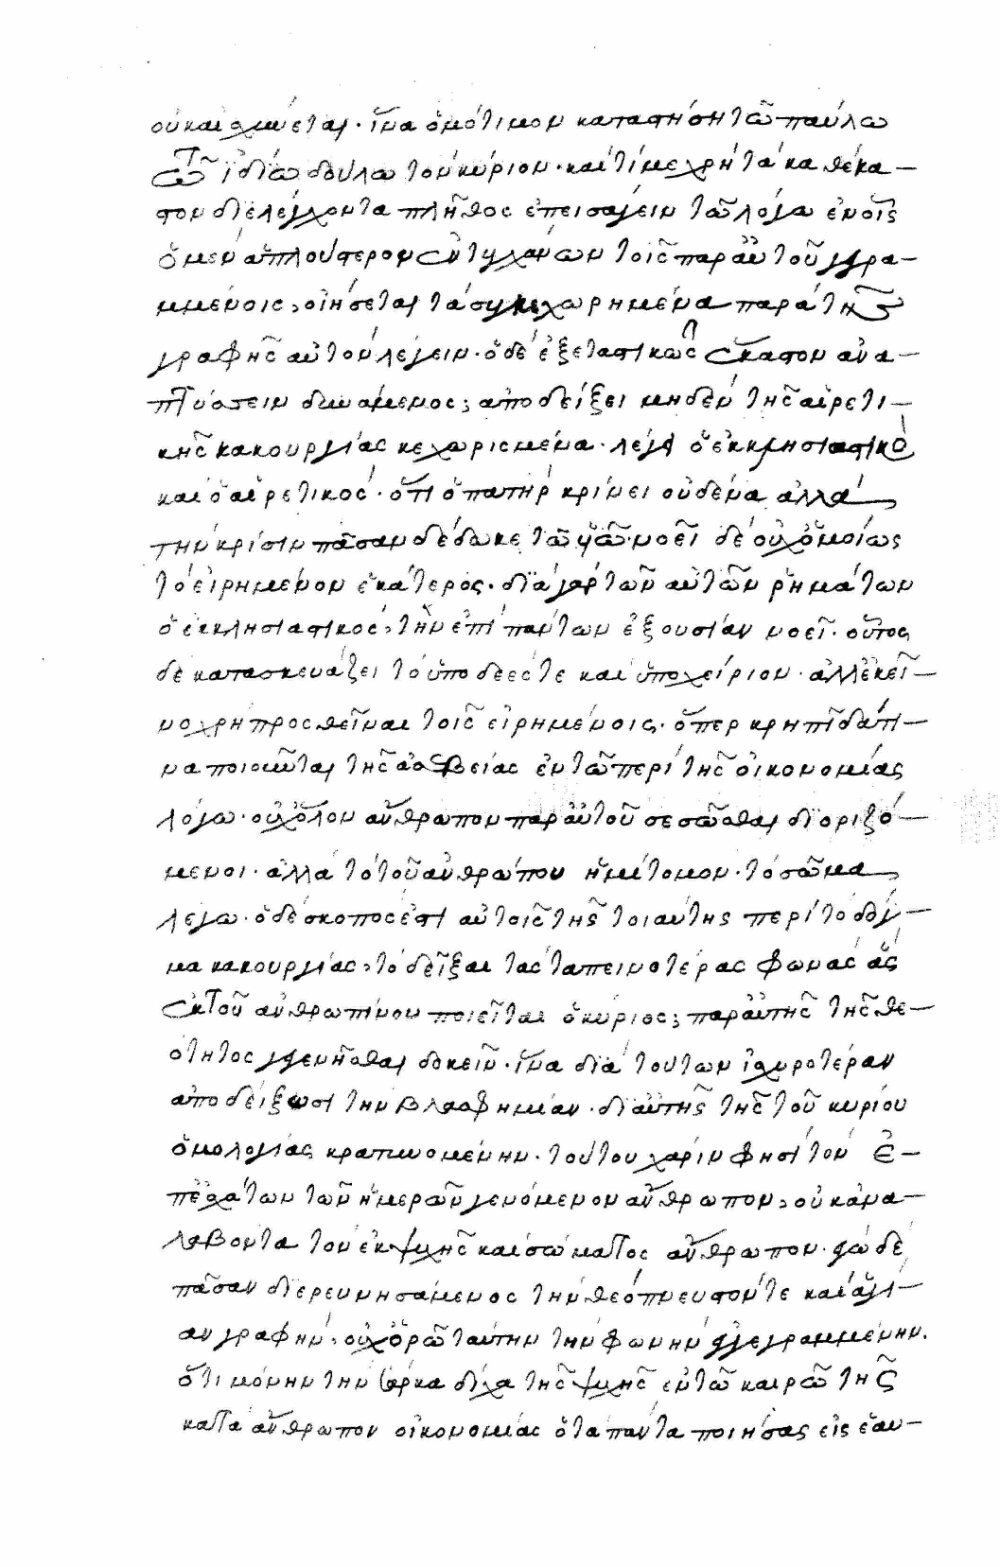 οὐκ αἰσχύνεται. ἵνα ὁμότιμον καταστήσῃ τῷ παύλῳ
τῷ ἰδίῳ δούλῳ τὸν κύριον. καὶ τί με χρὴ τὰ καθέκα-
στον διελέγχοντα πλῆθος ἐπεισάγειν τῷ λόγῳ ἐν οἷς
ὁ μὲν ἁπλούστερον ἐντυγχάνων τοῖς παρ αὐτοῦ γεγρα-
μμένοις, οἰήσεται τὰ συγκεχωρημένα παρὰ τῆς
γραφῆς αὐτὸν λέγειν. ὁ δὲ ἐξεταστικῶς ἕκαστον ἀνα-
πτύσσειν δυνάμενος; ἀποδείξει μηδὲν τῆς αἱρετι-
κῆς κακουργίας κεχωρισμένα. λέγει ὁ ἐκκλησιαστικὸς
καὶ ὁ αἱρετικός. ὅτι ὁ πατὴρ κρίνει οὐδένα ἀλλὰ
τὴν κρίσιν πᾶσαν δέδωκε τῷ υἱῷ. νοεῖ δὲ οὐχ ὁμοίως
τὸ εἰρημένον ἑκάτερος. διὰ γὰρ τῶν αὐτῶν ῥημάτων
ὁ ἐκκλησιαστικός, τὴν ἐπὶ πάντων ἐξουσίαν νοεῖ. οὗτος
δὲ κατασκευάζει τὸ ὑποδεές τε καὶ ὑποχείριον. ἀλλ ἐκεῖ-
νο χρὴ προσθεῖναι τοῖς εἰρημένοις. ὅπερ κρηπῖδά τι-
να ποιοῦνται τῆς ἀσεβείας ἐν τῷ περὶ τῆς οἰκονομίας
λόγῳ. οὐχ ὅλον ἄνθρωπον παρ αὐτοῦ σεσῶσθαι διοριζό-
μενοι. ἀλλὰ τὸ τοῦ ἀνθρώπου ἡμίτομον. τὸ σῶμα
λέγω. ὁ δὲ σκοπός ἐστι αὐτοῖς τῆς τοιαύτης περὶ τὸ δόγ-
μα κακουργίας, τὸ δεῖξαι τὰς ταπεινοτέρας φωνὰς ἃς
ἐκ τοῦ ἀνθρωπίνου ποιεῖται ὁ κύριος; παρ αὐτῆς τῆς θε-
ότητος γεγενῆσθαι δοκεῖν. ἵνα διὰ τούτων ἰσχυροτέραν
ἀποδείξωσι τὴν βλασφημίαν. δι αὐτῆς τῆς τοῦ κυρίου
ὁμολογίας κρατυνομένην. τούτου χάριν φησὶ τὸν ἐ-
π ἐσχάτων τῶν ἡμερῶν γενόμενον ἄνθρωπον, οὐκ ἀνα-
λαβόντα τὸν ἐκ ψυχῆς καὶ σώματος ἄνθρωπον. ἐγὼ δὲ
πᾶσαν διερευνησάμενος τὴν θεόπνευστόν τε καὶ ἁγί-
αν γραφήν, οὐχ ὁρῶ ταύτην τὴν φωνὴν ἐγγεγραμμένην.
ὅτι μόνην τὴν σάρκα δίχα τῆς ψυχῆς ἐν τῷ καιρῷ τῆς
κατὰ ἄνθρωπον οἰκονομίας ὁ τὰ πάντα ποιήσας εἰς ἑαυ-